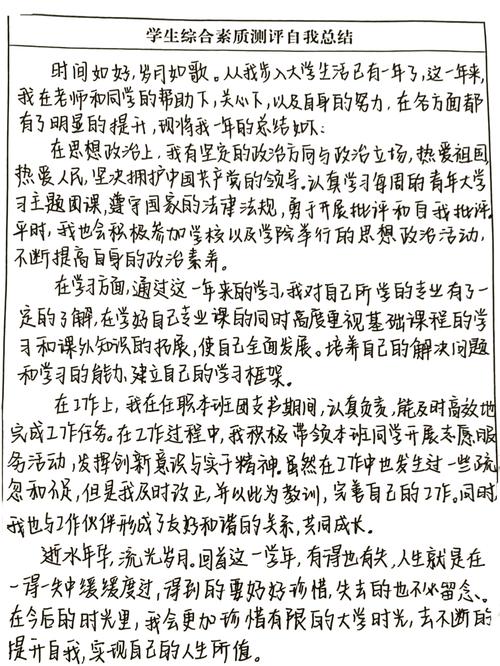 学生综合素质测评自我总结
时间如好，岁月如歌。从我步入大学生活已有一年了，这一年来，
我在老师和同学的帮助下，关心下，以及自身的努力，在各方面都
有了明显的提升，现将我一年的总结如下：
在思想政治上，我有坚定的政治方向与政治立场，热爱祖国，
热爱人民，坚决拥护中国共产党的领导。认真学习每周的青年大学
习主题团课，遵守国家的法律法规，勇于开展批评和自我批评
平时，我也会积极参加学校以及学院举行的思想政治活动，
不断提高自身的政治素养。
在学习方面，通过这一年来的学习，我对自己所学的专业有了一
定的了解，在学好自己专业课的同时高度重视基础课程的学
习和课外知识的拓展，使自己全面发展。培养自己的解决问题
和学习的能力、建立自己的学习框架。
在工作上，我在任职本班团支书期间，认真负责，能及时高效地
完成工作任务。在工作过程中，我积极带领本班同学开展志愿服
务活动，发挥创新意识与实干精神。虽然在工作中也发生过一些疏
忽和不足，但是我及时改正，并以此为教训，完善自己的工作。同时
我也与工作伙伴形成了友好和谐的关系，共同成长。
逝水年华，流光岁月。回首这一学年，有得也有失，人生就是在
一得一失中缓缓度过，得到的要好好珍惜，失去的也不必留念。
在今后的时光里，我会更加珍惜有限的大学时光，去不断的
提升自我，实现自己的人生所值。